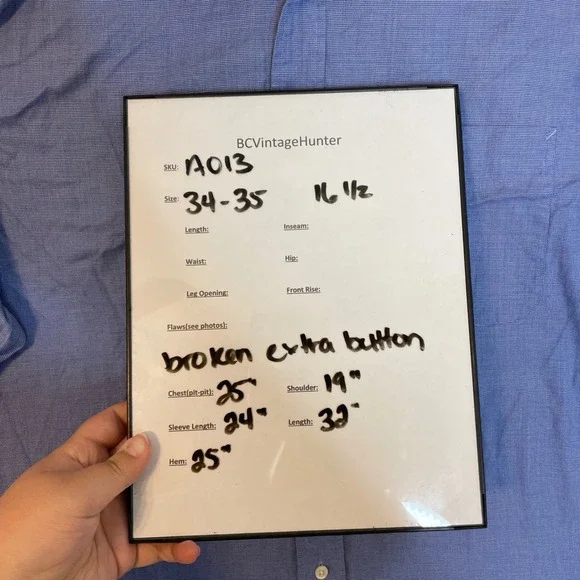 BCVintageHunter
SKU: A013
Size: 34-35 16 1/2
Length: Inseam:
Waist: Hip:
Leg Opening: Front Rise:
Flaws(see photos):
broken extra button
Chest(pit-pit): 25" Shoulder: 19"
Sleeve Length: 24" Length: 32"
Hem: 25"